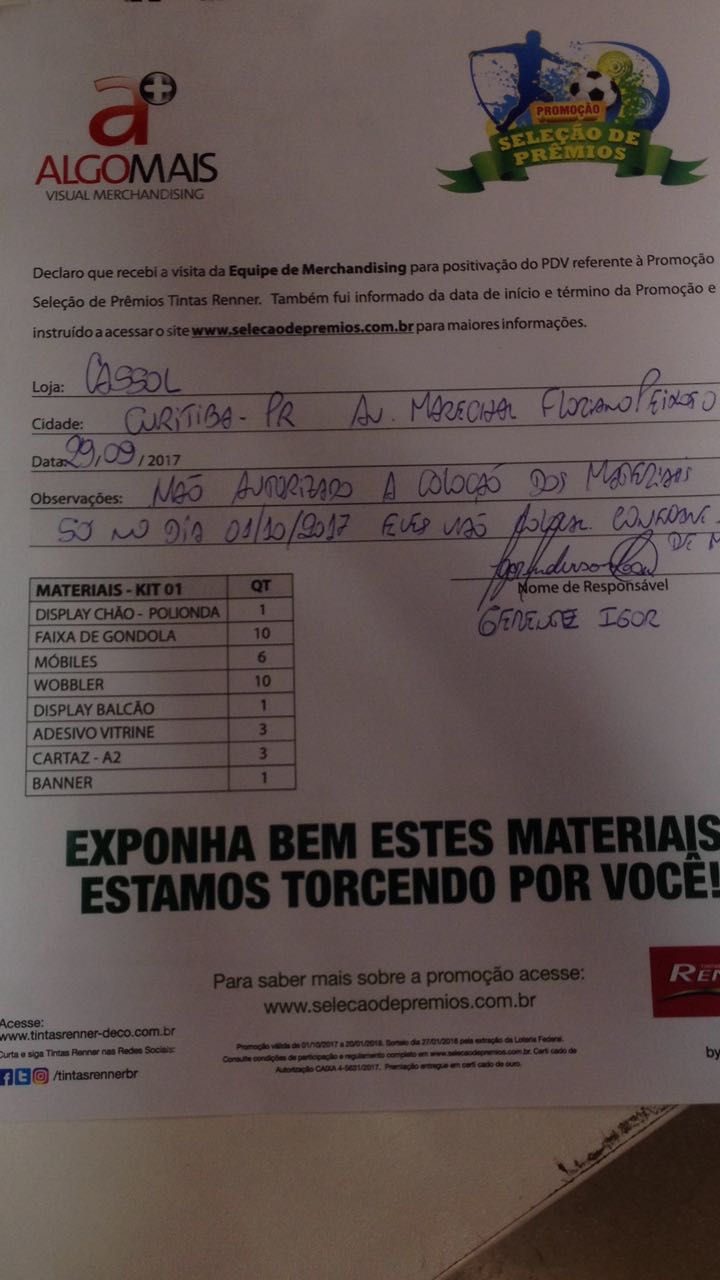 a+
ALGOMAIS
VISUAL MERCHANDISING
PROMOÇÃO
SELEÇÃO DE
PRÊMIOS
Declaro que recebi a visita da Equipe de Merchandising para positivação do PDV referente à Promoção
Seleção de Prêmios Tintas Renner. Também fui informado da data de início e término da Promoção e
instruído a acessar o site www.selecaodepremios.com.br para maiores informações.
Loja: CASSOL
Cidade: CURITIBA - PR AV. MARECHAL FLORIANO PEIXOTO
Data: 29/09/2017
Observações: NÃO AUTORIZADO A COLOCAÇÃO DOS MATERIAIS
SO NO DIA 01/10/2017 ELES VÃO
DE
Nome de Responsável
GERENTE IGOR
MATERIAIS - KIT 01 QT
DISPLAY CHÃO - POLIONDA 1
FAIXA DE GONDOLA 10
MÓBILES 6
WOBBLER 10
DISPLAY BALCÃO 1
ADESIVO VITRINE 3
CARTAZ - A2 3
BANNER 1
EXPONHA BEM ESTES MATERIAIS
ESTAMOS TORCENDO POR VOCÊ!
Para saber mais sobre a promoção acesse:
www.selecaodepremios.com.br
Acesse:
www.tintasrenner-deco.com.br
Curta e siga Tintas Renner nas Redes Sociais:
/tintasrennerbr
Promoção válida de 01/10/2017 a 20/01/2018. Sorteio dia 27/01/2018 pela extração da Loteria Federal.
Consulte condições de participação e regulamento completo em www.selecaodepremios.com.br. Certi cado de
Autorização CAIXA 4-5631/2017. Premiação entregue em certi cado de ouro.
by